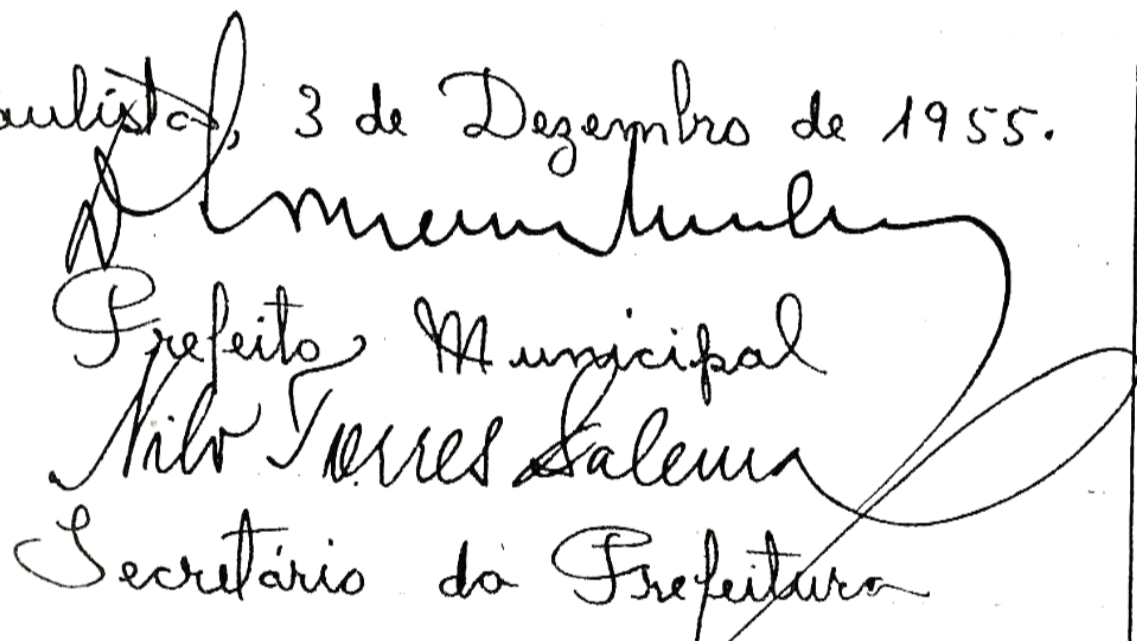 aulista, 3 de Dezembro de 1955.
Prefeito Municipal
Nilo Torres Salema
Secretário da Prefeitura